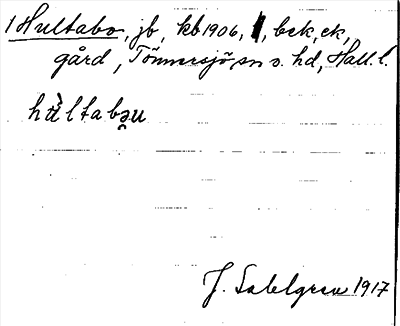 1 Hultabo, jb, kb 1906, bek, ek,
gård, Tönnersjö sn s. hd, Hall. l.
hu̇̀ltabəu
J. Sahlgren 1917